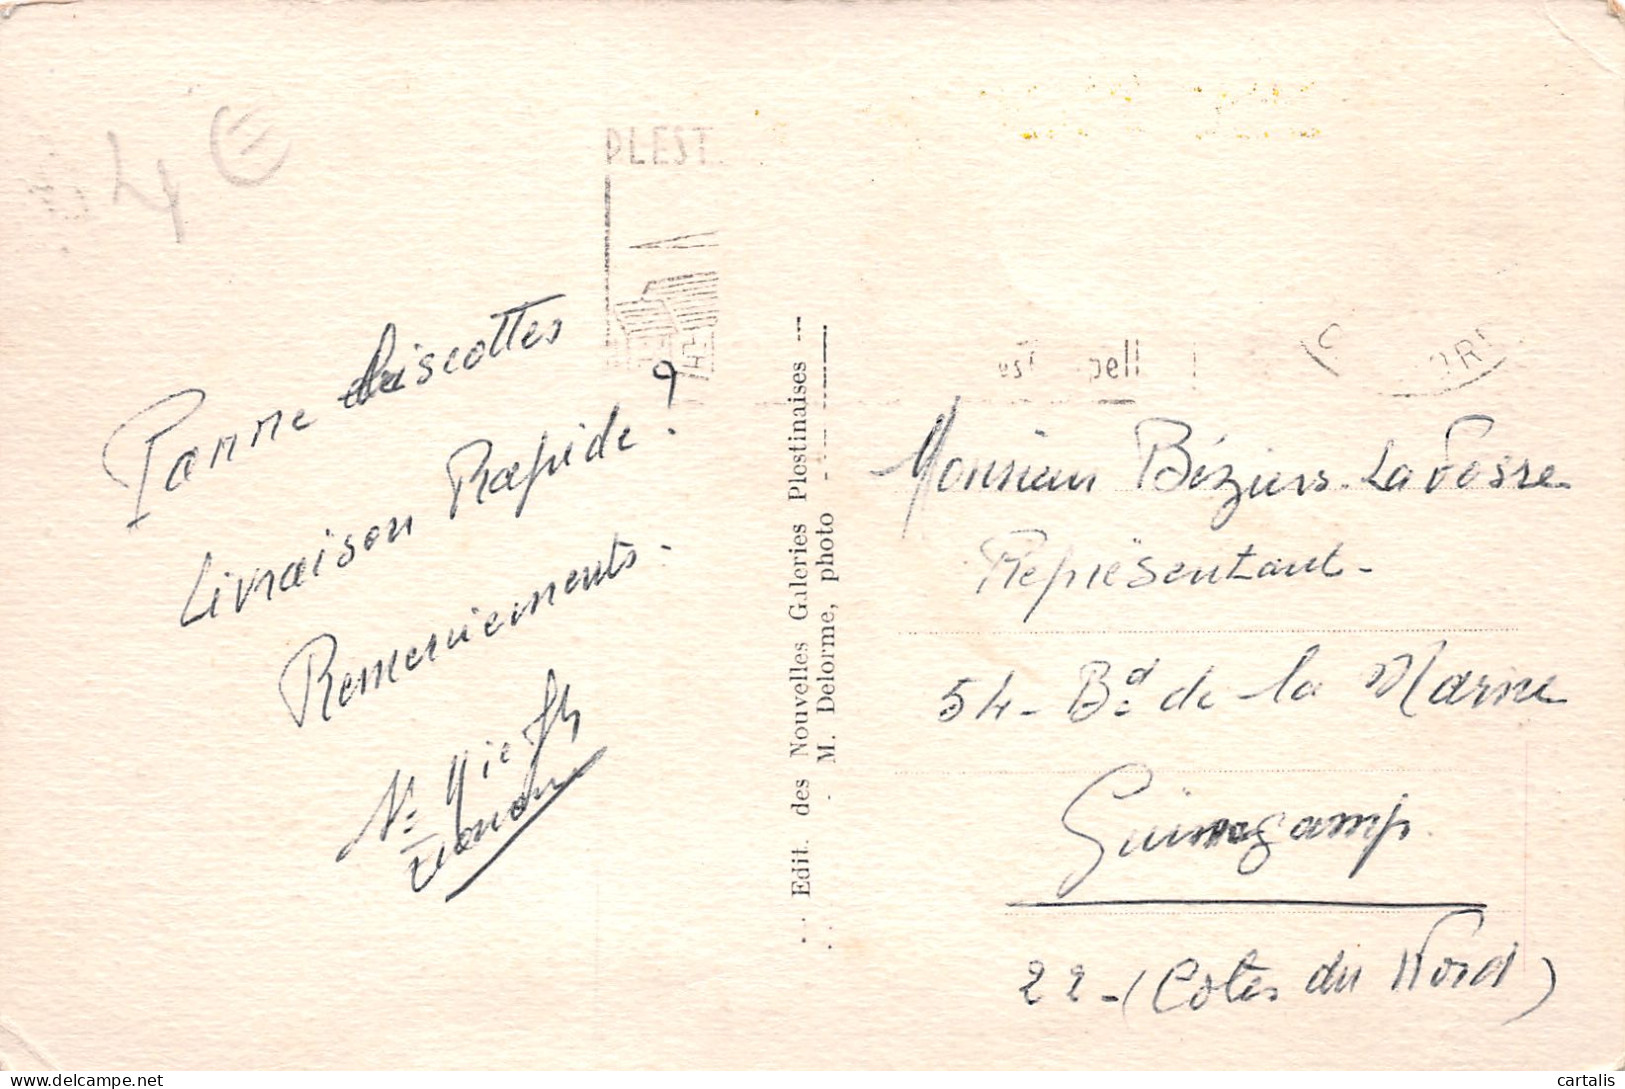 4 €
PLEST
Panne biscottes
Livraison Rapide !
Remerciements -
Edit. des Nouvelles Galeries Plestinaises
M. Delorme, photo
Monsieur Béziers-La Fosse
Représentant -
54 - Bd de la Marne
Guingamp
22 - (Côtes du Nord)
delcampe.net
cartalis